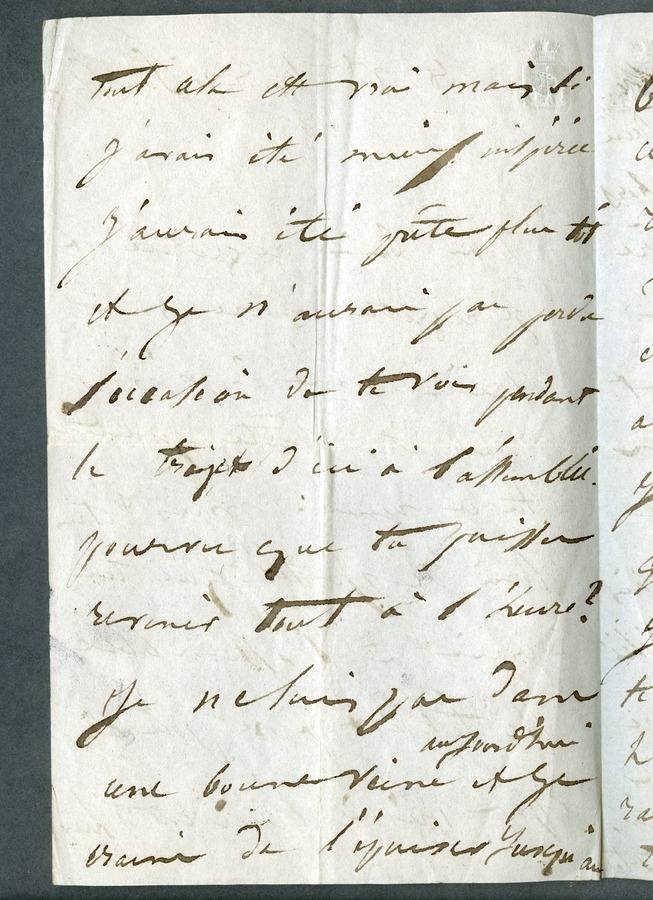 tout cela est vrai mais si
j'avais été mieux inspirée
j'aurais été prête plus tôt
et je n'aurais pas perdu
l'occasion de te voir pendant
le trajet d'ici à l'assemblée.
pourvu que tu puisses
revenir tout à l'heure?
Je ne suis pas dans
aujourd'hui
une bonne veine et je
crains de l'épuiser jusqu'au